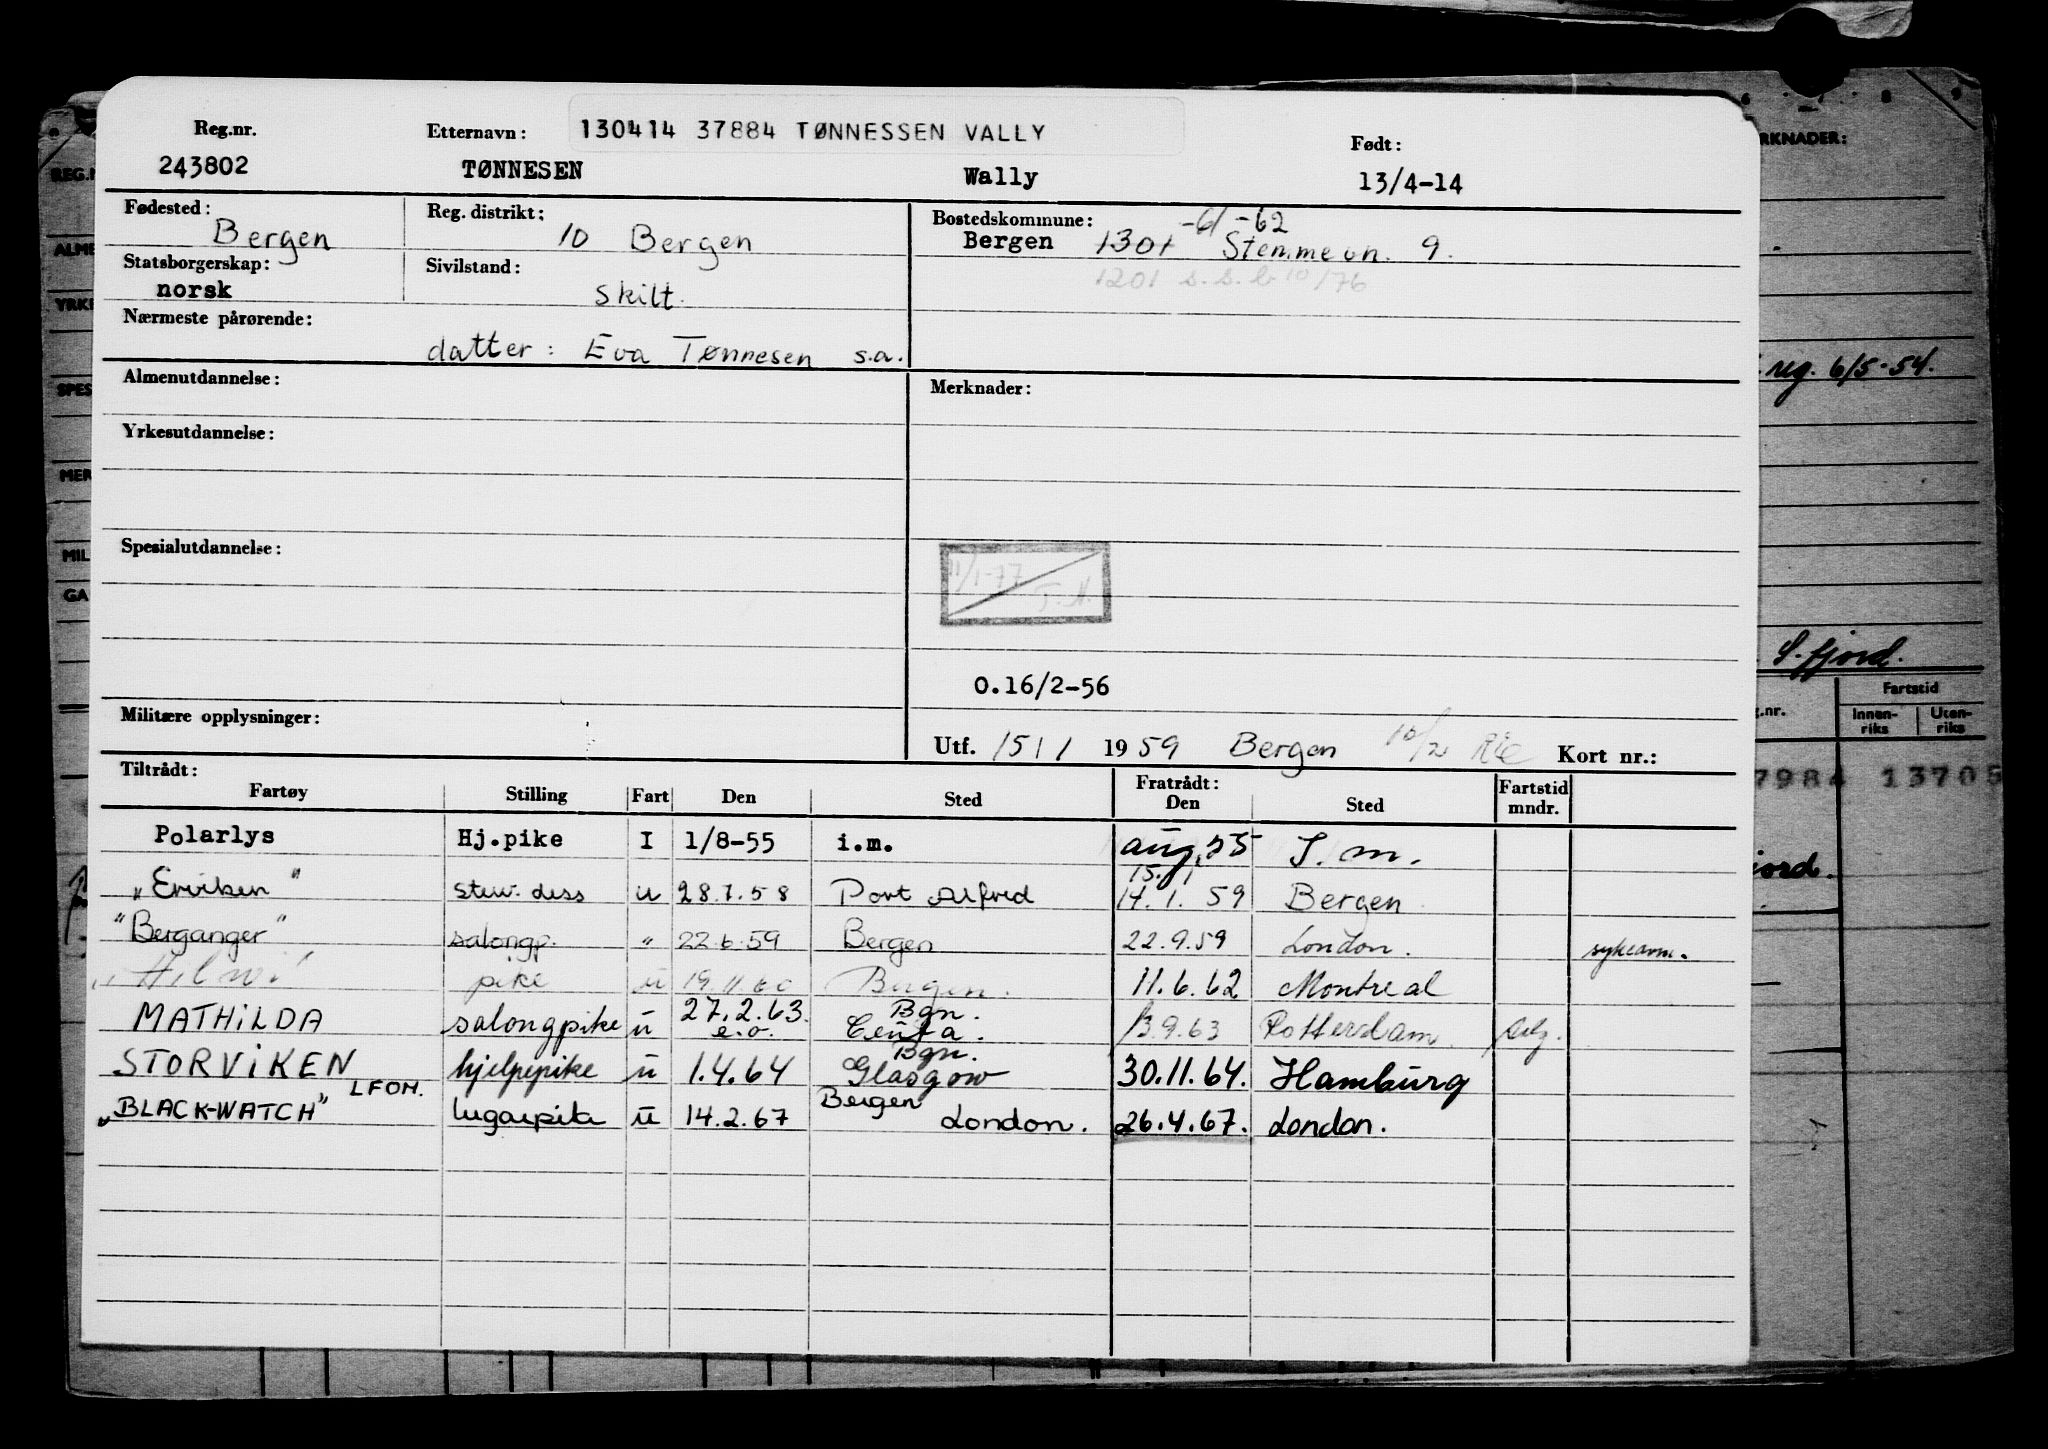 Reg.nr. Etternavn: 130414 37884 TØNNESSEN VALLY Født:
243802 TØNNESEN Wally 13/4-14
Fødested: Reg. distrikt: Bostedskommune: -6/-62
Bergen 10 Bergen Bergen 1301 Stemmevn. 9.
Statsborgerskap: Sivilstand: 1201 s.s.b. 10/76
norsk Skilt.
Nærmeste pårørende:
datter: Eva Tønnesen s.a.
Almenutdannelse: Merknader:
Yrkesutdannelse:
Spesialutdannelse:
11/1-77 T.H.
0.16/2-56
Militære opplysninger:
Utf. 15/1 1959 Bergen 10/2 Kort nr.:
Tiltrådt: Fratrådt:
Fartøy Stilling Fart Den Sted Den Sted Fartstid mndr.
Polarlys Hj.pike I 1/8-55 i.m. aug. 55 I. m.
15. 1
"Eriviken" stew. dess u 28.7.58 Port Alfred 14.1.59 Bergen
"Berganger" salongp. " 22.6.59 Bergen 22.9.59 London. sykeavm.
pike u 19.11.60 Bergen. 11.6.62 Montreal
27.2.63. Bgn.
MATHILDA salongpike u e.o. Ceuta. 13.9.63 Rotterdam.
Bgn.
STORVIKEN hjelpepike u 1.4.64 Glasgow 30.11.64. Hamburg
LFOM. Bergen
"BLACK-WATCH" lugarpike u 14.2.67 London. 26.4.67. London.
RKNADER:
REG.N
ALME
YRKE
reg. 6/5-54.
SPES
MER
MIL
GA
S.fjord.
Fartstid
g.nr. Innen-riks Uten-riks
7984 13705
jord.